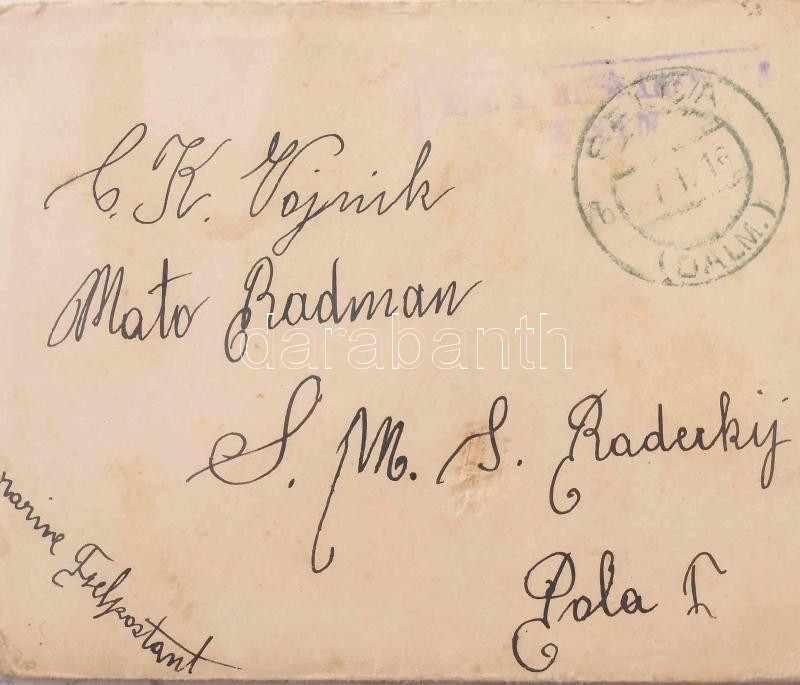 C. K. Vojnik
Mato Radman
S. M. S. Radeckij
Pola I
marine Feelpostant
SELCA
7. 1. 16
b
(DALM.)
darabanth